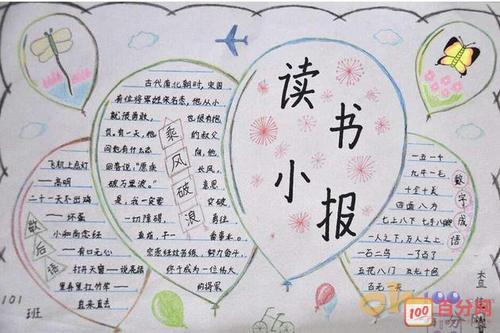 读书
小报
古代南北朝时,宋国
有位将军姓宗名悫,他从小
就很勇敢,也很有抱
负,有一天,他的叔父
问他有什么志向,他
回答说:"愿乘长风,
破万里浪。"意思
是,我一定要突破
一切障碍,勇往
直前,干一番事业。
宗悫经过苦练,努力奋斗,
终于成为一位伟大
的将军
乘风破浪
飞机上点灯
——高明
二十一天不出鸡
——坏蛋
小和尚念经
——有口无心
打开天窗——说亮话
里弄里扛竹竿——
直来直去
歇后语
一五一十
九牛一毛
十全十美
四面八方
七上八下 七手八脚
一人之下,万人之上
一石二鸟 一了百了
五花八门 五光十色
百无一失
数字成语
101
班
100
百分网